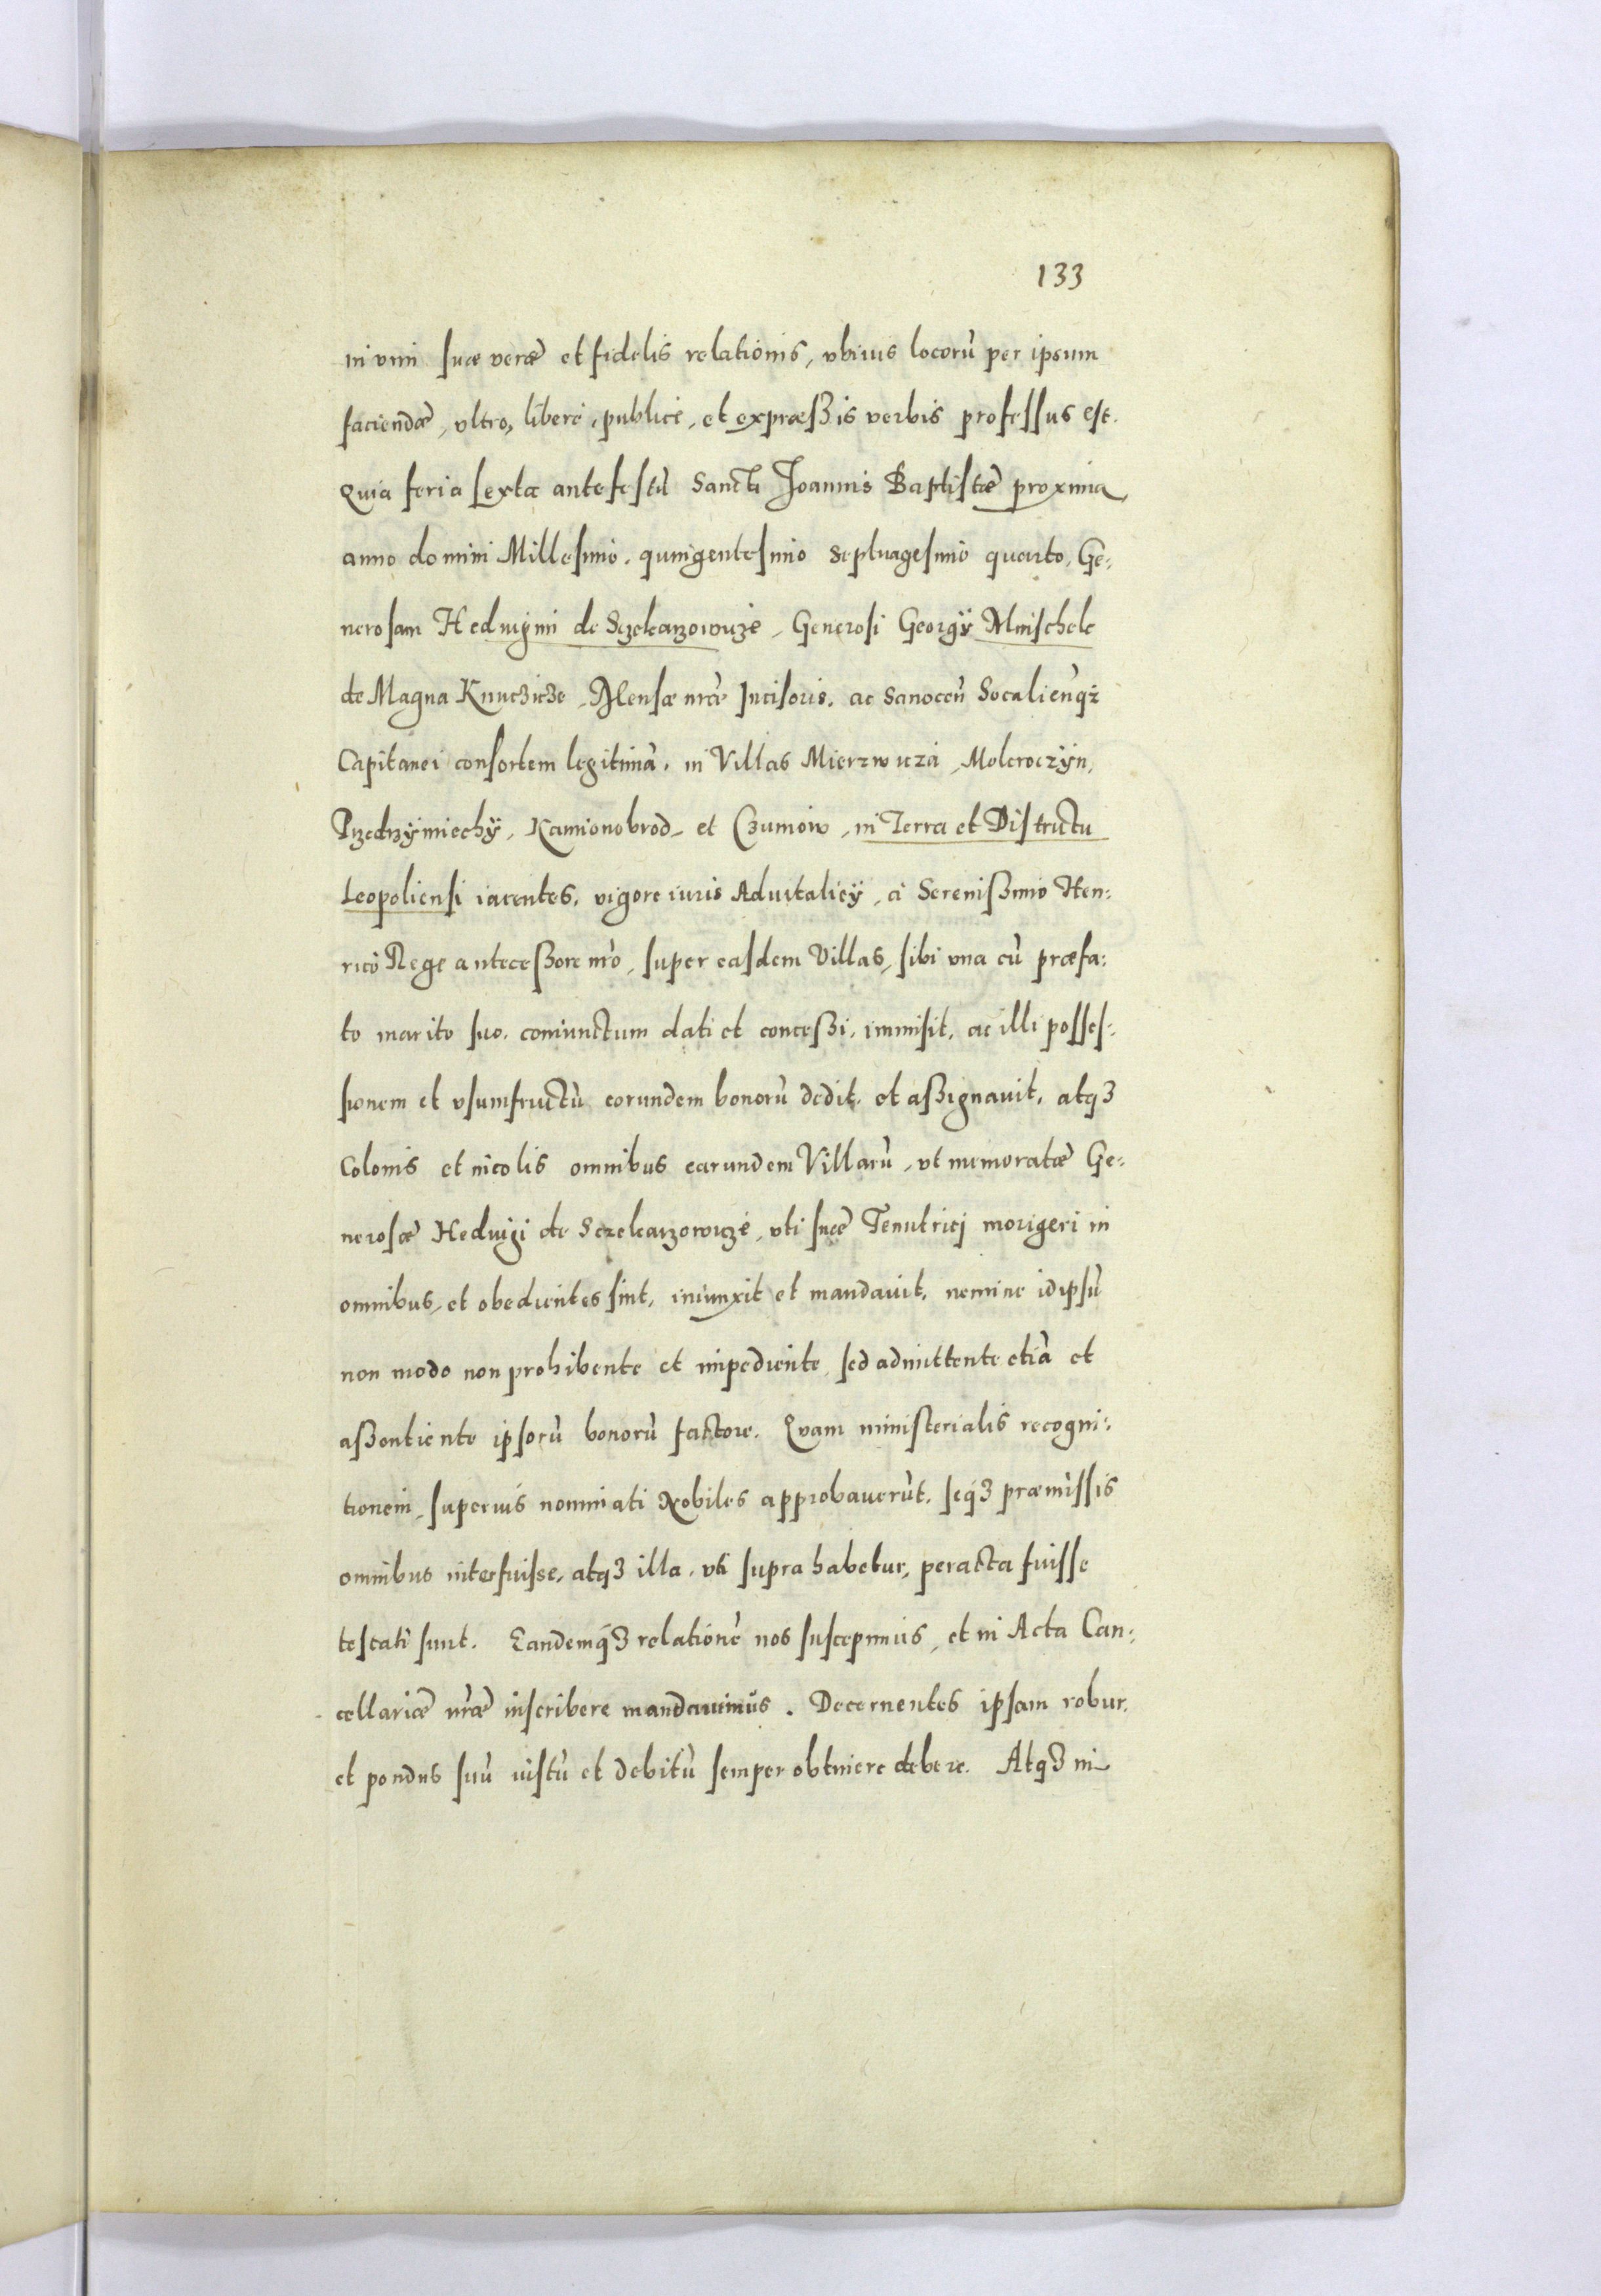 133
in vim suæ veræ et fidelis relationis, vbiuis locorũ per ipsum
faciendæ, vltro, liberè, publicè, et expræßis verbis professus est.
Quia feria sexta ante festũ Sancti Joannis Baptistæ proxima
anno domini Millesimo, quingentesimo septuagesimo quarto, Ge:
nerosam Heduigim de Sczekarzowicze, Generosi Georgÿ Mnischek
de Magna Knuczicze, Mensæ nr̃æ Incisoris, ac Sanoceñ Socalieñqȝ
Capitanei consortem legitimã, in Villas Mierzwicza, Mokroczÿn,
Przedrzÿmiechÿ, Kamionobrod, et Czumow, in Terra et Districtu
Leopoliensi iacentes, vigore iuris Aduitalicÿ, à Serenißimo Hen:
rico Rege anteceßore nr̃o, super easdem Villas, sibi vna cũ præfa:
to marito suo, coniunctum dati et conceßi, immisit, ac illi posses:
sionem et vsumfructũ eorundem bonorũ dedit, et aßignauit, atqȝ
Colonis et incolis omnibus earundem Villarũ, vt memoratæ Ge:
nerosæ Heduigi de Sczekarzowicze, vti suæ Tenutrici morigeri in
omnibus, et obedientes sint, iniunxit et mandauit, nemine idipsũ
non modo non prohibente et impediente, sed admittente etiã et
aßentiente ipsorũ bonorũ factore. Quam ministerialis recogni:
tionem, superius nominati Nobiles approbauerũt, seqȝ præmissis
omnibus interfuisse, atqȝ illa, vti supra habetur, peracta fuisse
testati sunt. Eandemqȝ relationẽ nos suscepimus, et in Acta Can:
cellariæ nr̃æ inscribere mandauimus. Decernentes ipsam robur,
et pondus suũ iustũ et debitũ semper obtinere debere. Atqȝ in